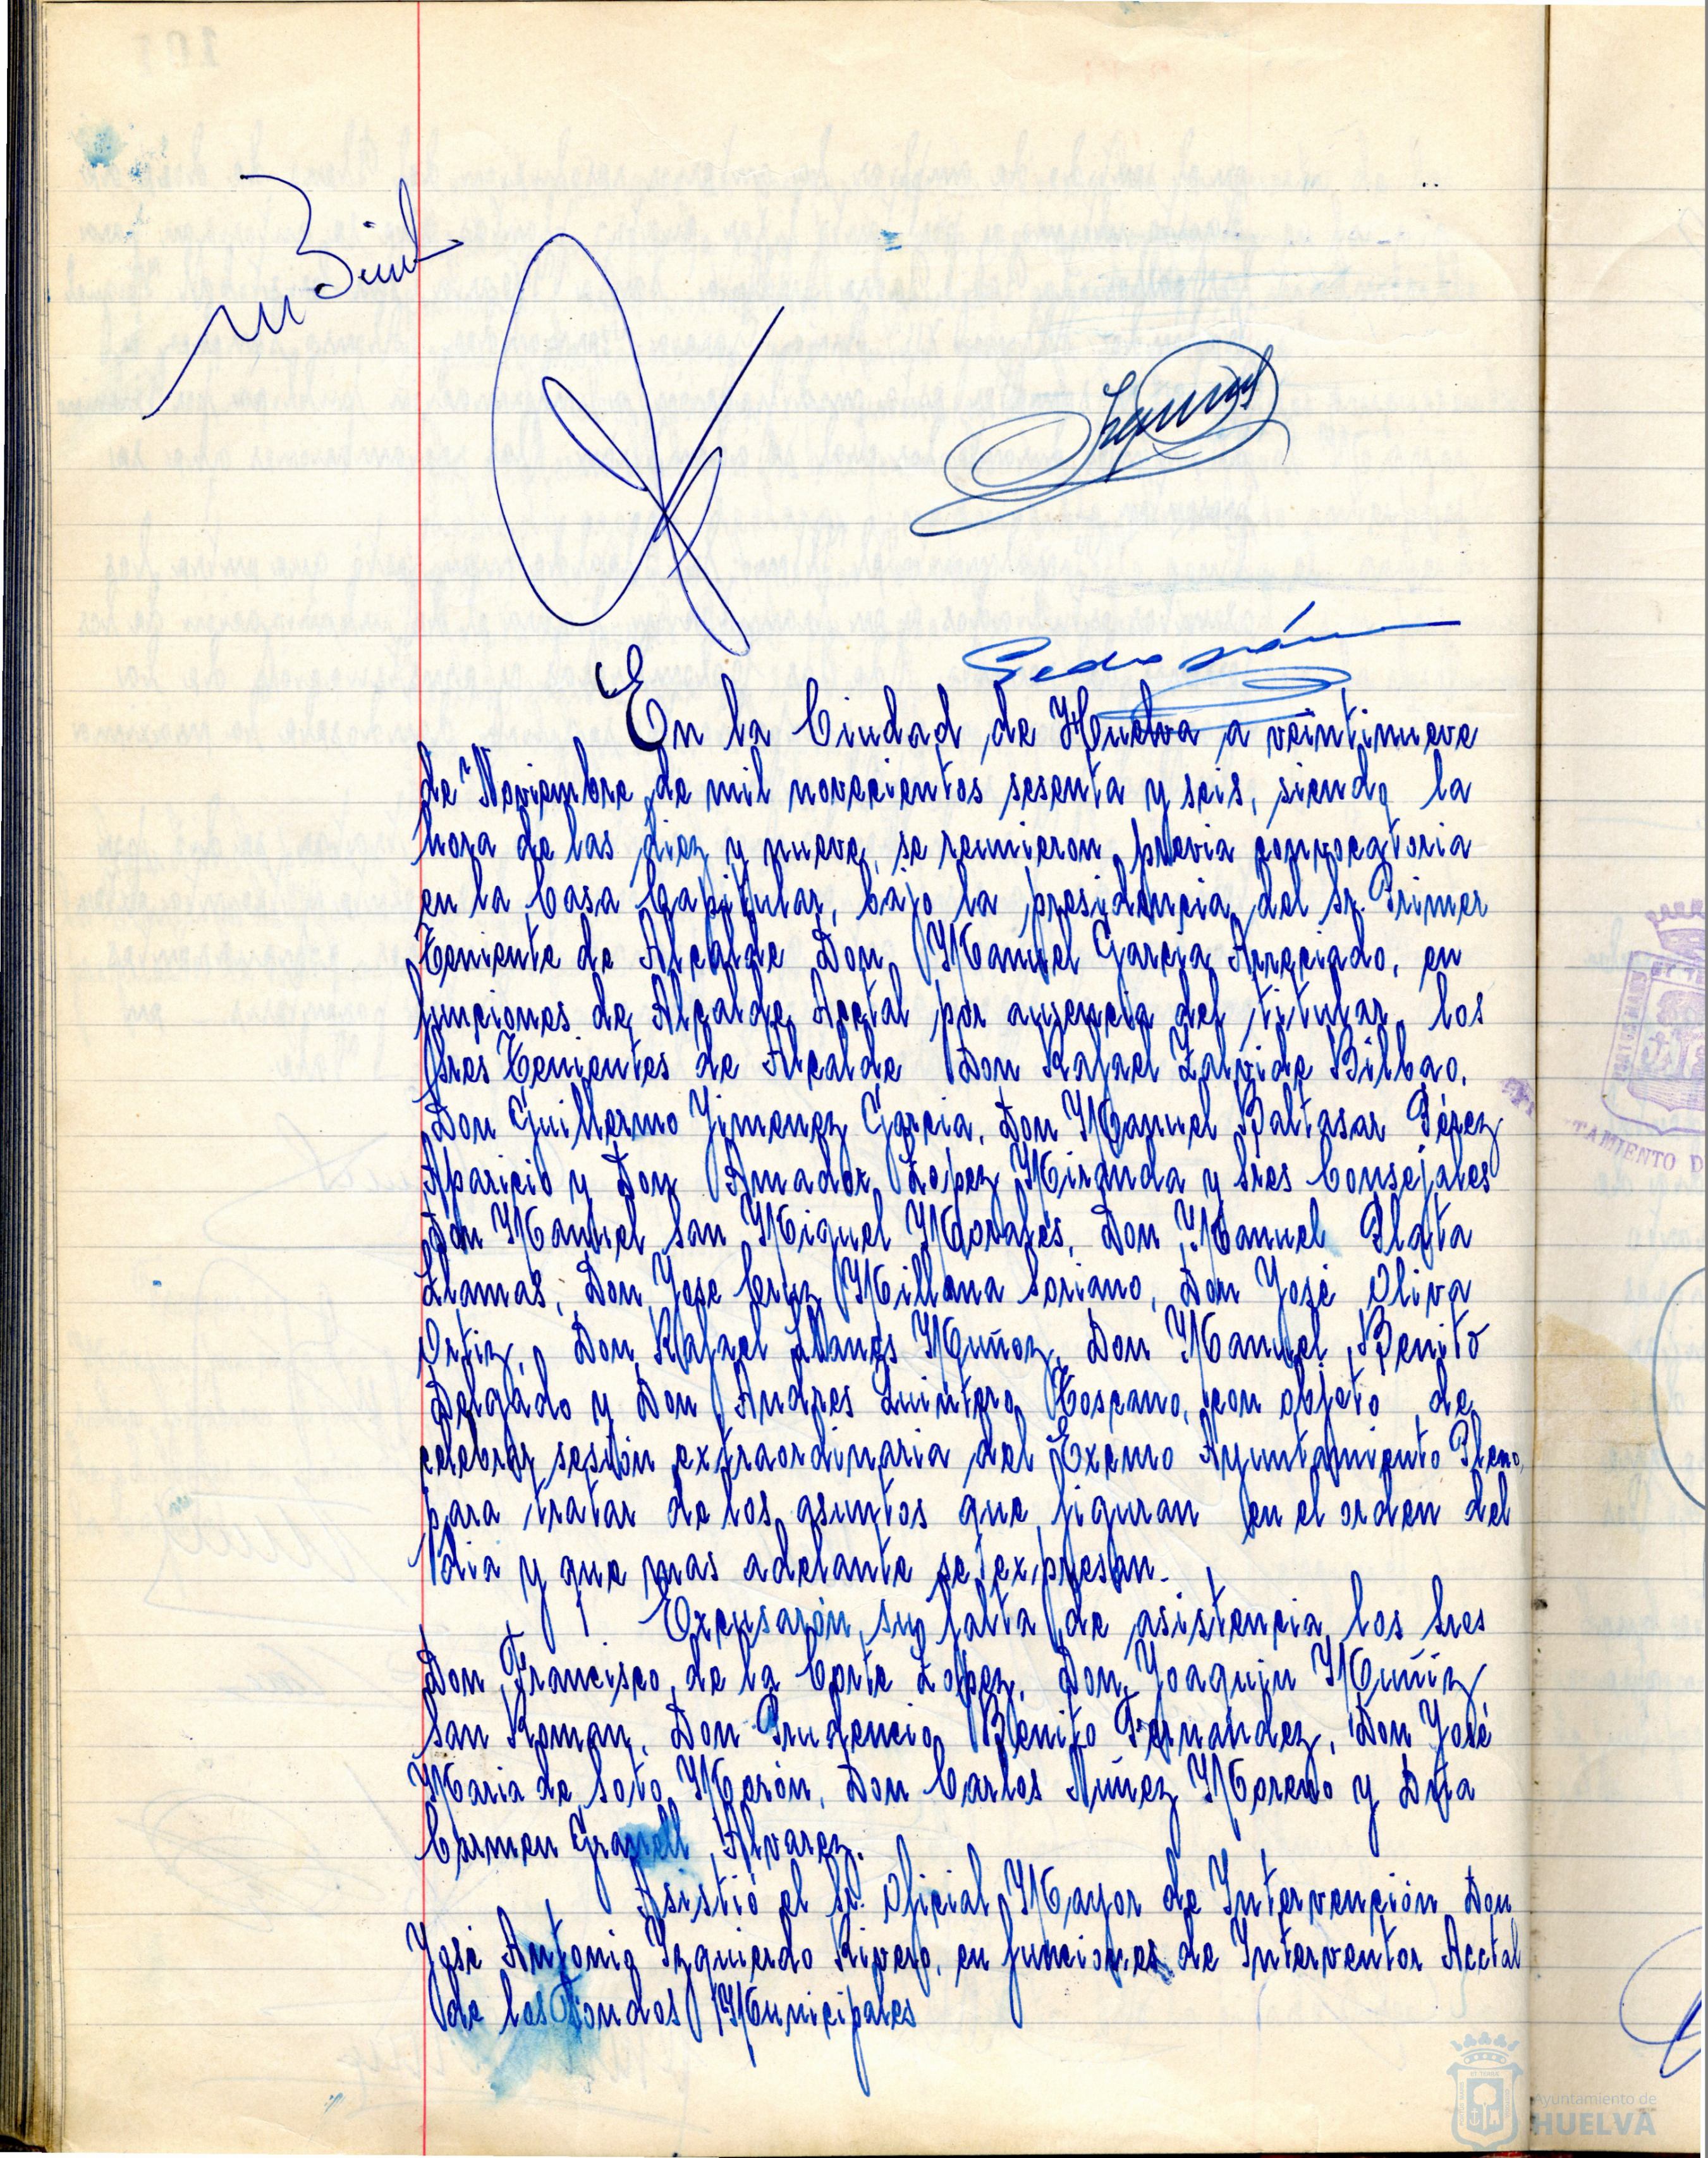 En la Ciudad de Huelva a veintinueve
de Noviembre de mil novecientos sesenta y seis, siendo la
hora de las diez y nueve, se reunieron previa convocatoria
en la Casa Capitular, bajo la presidencia del Sr. Primer
Teniente de Alcalde Don Manuel García Arreciado, en
funciones de Alcalde Acctal por ausencia del titular, los
Sres Tenientes de Alcalde Don Rafael Zalvide Bilbao,
Don Guillermo Jimenez García, Don Manuel Baltasar Pérez
Aparicio y Don Amador Lopez Miranda y Sres Consejales
Don Manuel San Miguel Morales, Don Manuel Plata
Llamas, Don Jose Cruz Millana Soriano, Don José Oliva
Ortiz, Don Rafael Llanes Muñoz, Don Manuel Benito
Delgado y Don Andres Quintero Toscano, con objeto de
celebrar sesión extraordinaria del Excmo Ayuntamiento Pleno,
para tratar de los asuntos que figuran en el orden del
dia y que mas adelante se expresan.
Excusarón su falta de asistencia los Sres
Don Francisco de la Corte Lopez, Don Joaquin Muñiz
San Roman, Don Prudencio Benito Fernandez, Don José
Maria de Soto Morón, Don Carlos Núñez Moreno y Dña
Carmen Granell Alvarez.
Asistió el Sr. Oficial Mayor de Intervención Don
José Antonio Izquierdo Rivero, en funciones de Interventor Acctal
de los Fondos Municipales
TAMIENTO D
Ayuntamiento de
HUELVA